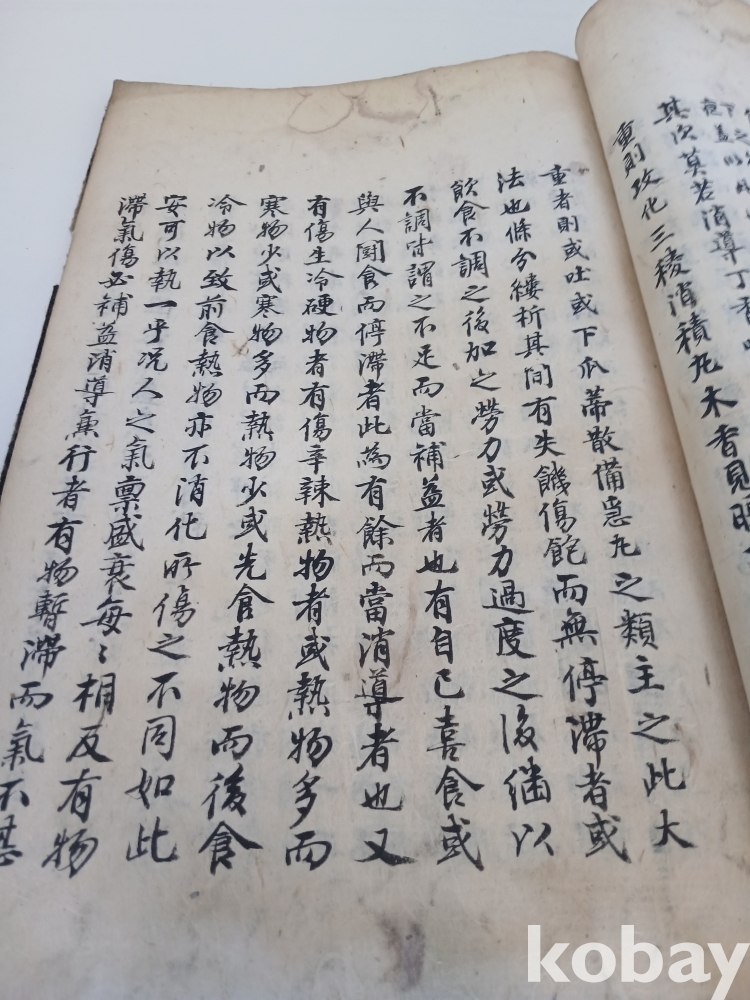 其次莫若消導丁香
重則攻化三稜消積丸木香見晛
重者則或吐或下瓜蒂散備急丸之類主之此大
法也條分縷析其間有失饑傷飽而無停滯者或
飲食不調之後加之勞力或勞力過度之後繼以
不調皆謂之不足而當補益者也有自己喜食或
與人鬪食而停滯者此為有餘而當消導者也又
有傷生冷硬物者有傷辛辣熱物者或熱物多而
寒物少或寒物多而熱物少或先食熱物而後食
冷物以致前食熱物亦不消化所傷之不同如此
安可以執一乎況人之氣稟盛衰每〻相反有物
滯氣傷必補益消導兼行者有物暫滯而氣不甚
kobay